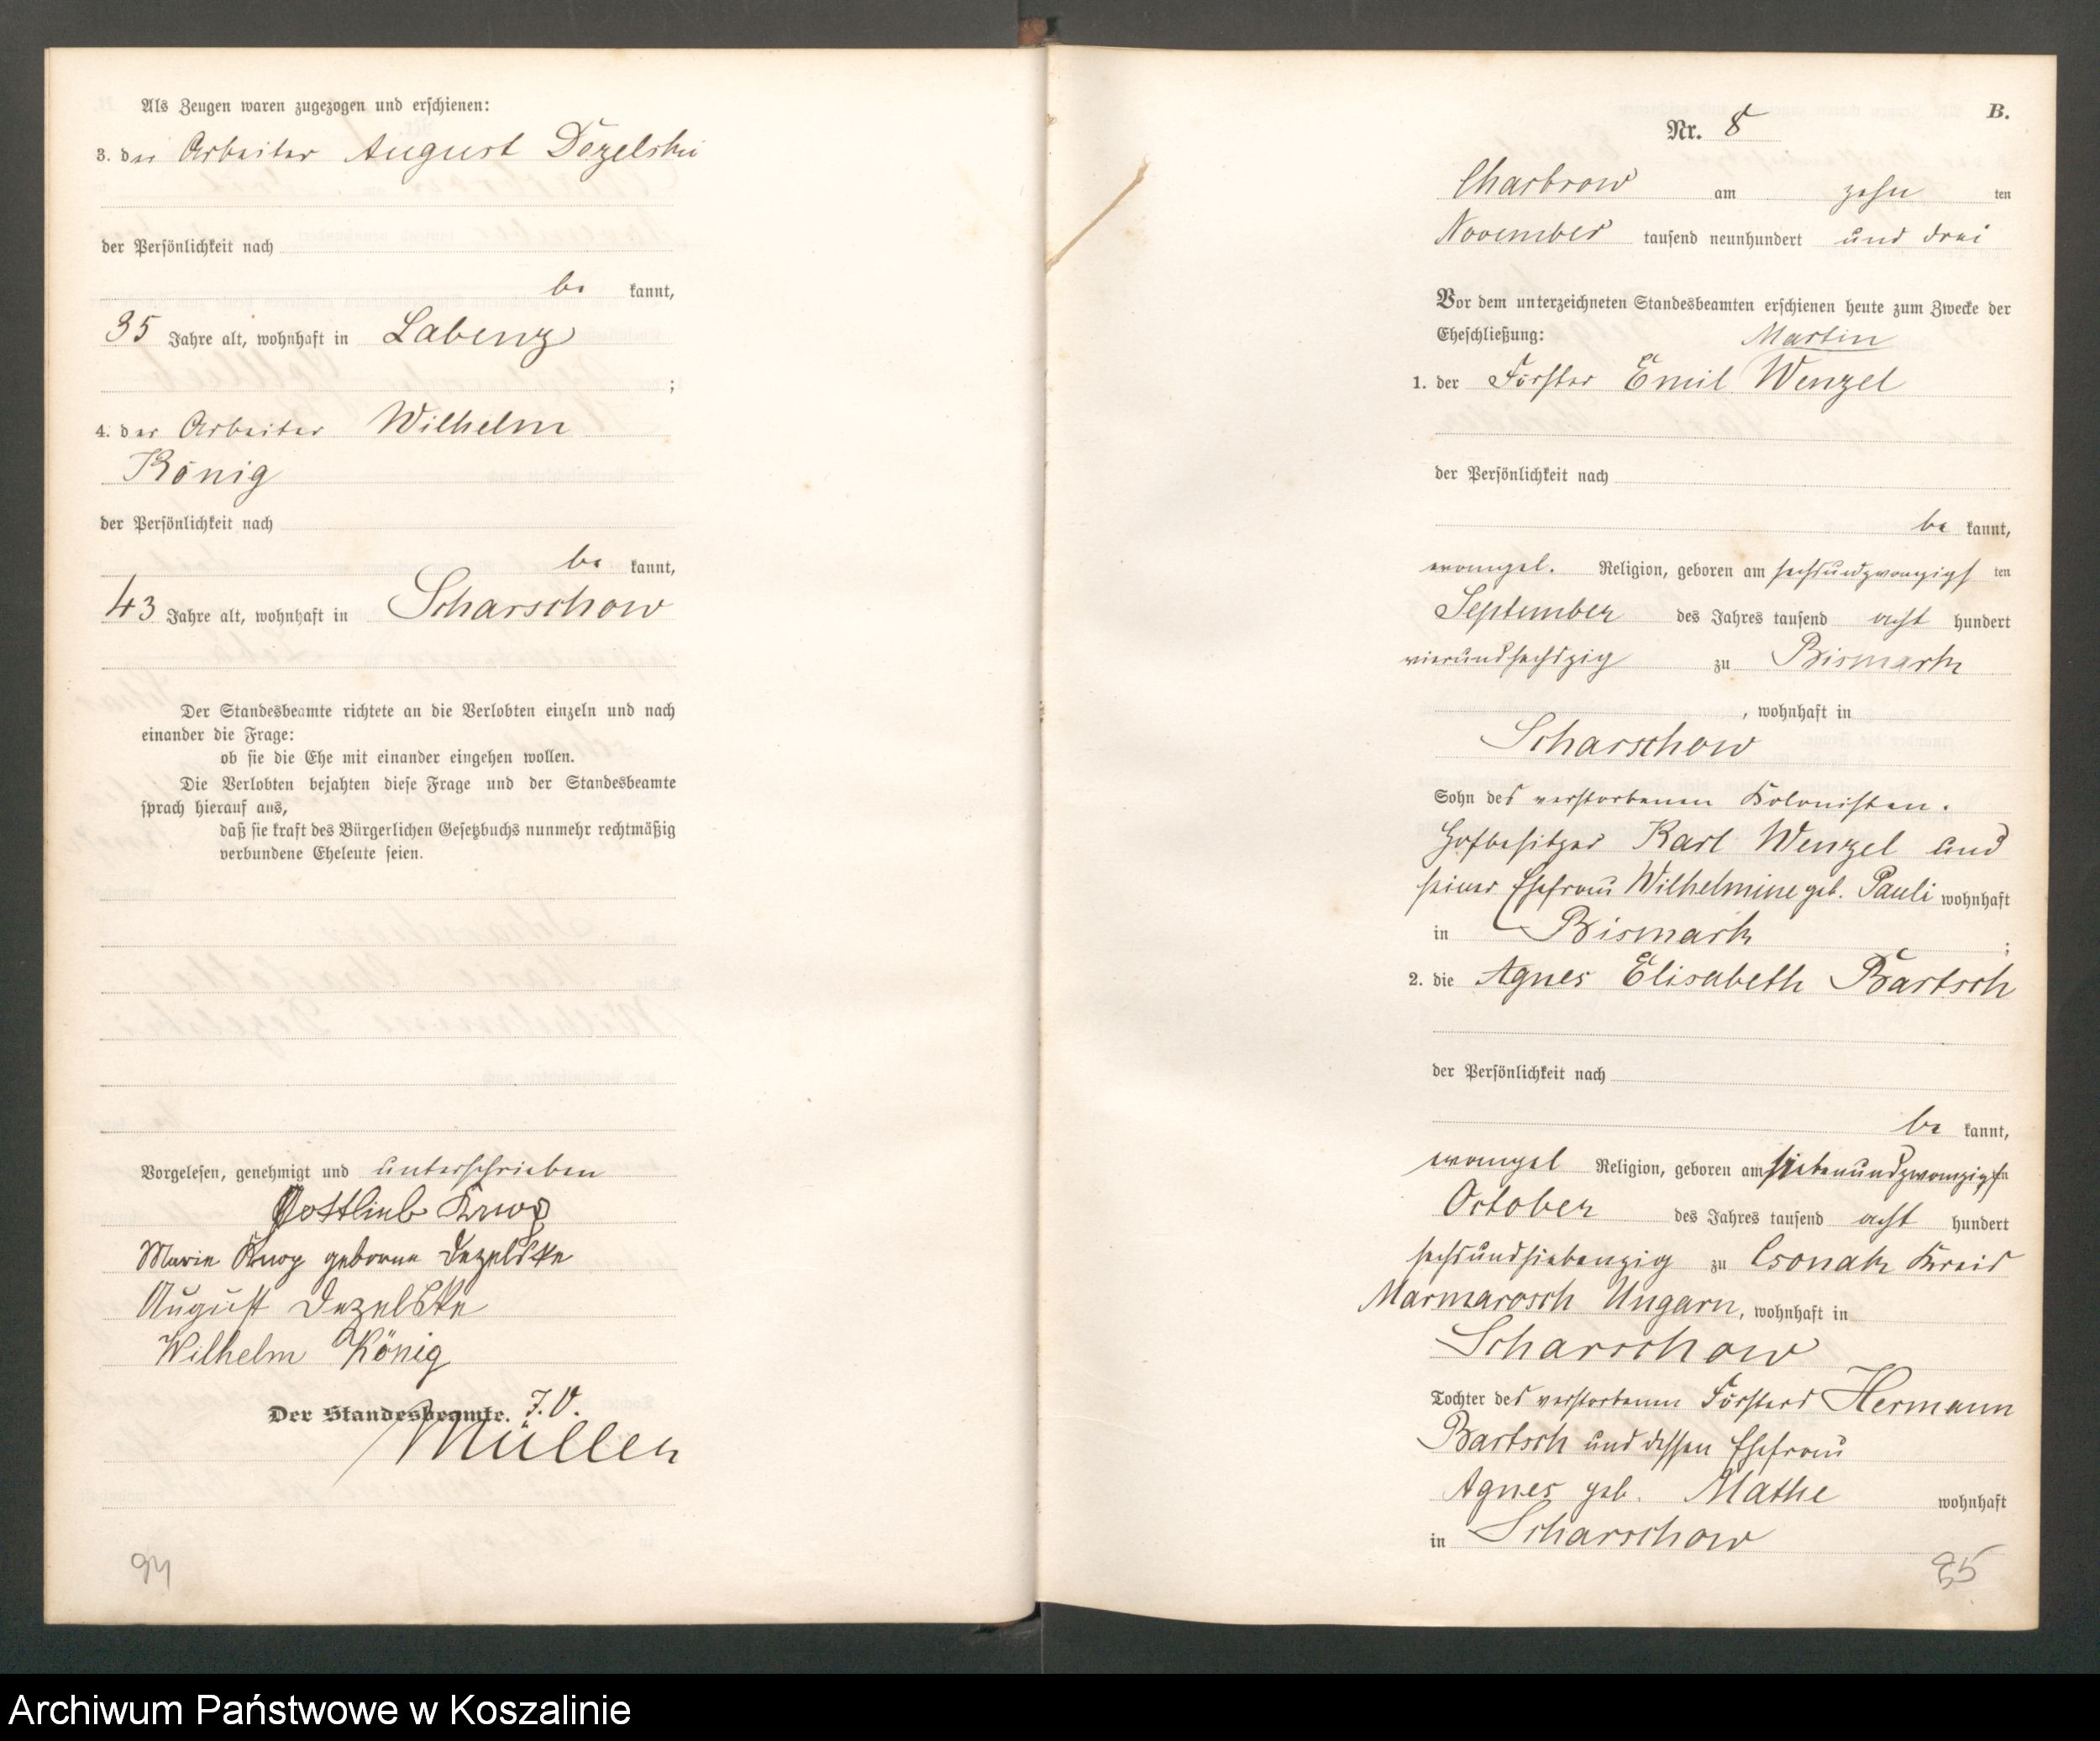 Als Zeugen waren zugezogen und erschienen:
3. der Arbeiter August Dezelski
der Persönlichkeit nach
be kannt,
35 Jahre alt, wohnhaft in Labenz
;
4. der Arbeiter Wilhelm
König
der Persönlichkeit nach
be kannt,
43 Jahre alt, wohnhaft in Scharschow
Der Standesbeamte richtete an die Verlobten einzeln und nach
einander die Frage:
ob sie die Ehe mit einander eingehen wollen.
Die Verlobten bejahten diese Frage und der Standesbeamte
sprach hierauf aus,
daß sie kraft des Bürgerlichen Gesetzbuchs nunmehr rechtmäßig
verbundene Eheleute seien.
Vorgelesen, genehmigt und unterschrieben
Gottlieb Knop
Marie Knop geborne Dezelske
August Dezelske
Wilhelm König
Der Standesbeamte. J. V.
Müller
94
B.
Nr. 8
Charbrow am zehn ten
November tausend neunhundert und drei
Vor dem unterzeichneten Standesbeamten erschienen heute zum Zwecke der
Eheschließung:
Martin
1. der Förster Emil Wenzel
der Persönlichkeit nach
be kannt,
evangel. Religion, geboren am sechsundzwanzigs ten
September des Jahres tausend acht hundert
vierundsechszig zu Bismark
, wohnhaft in
Scharschow
Sohn des verstorbenen Kolonisten.
Hofbesitzer Karl Wenzel und
seiner Ehefrau Wilhelmine geb. Pauli wohnhaft
in Bismark ;
2. die Agnes Elisabeth Bartsch
der Persönlichkeit nach
be kannt,
evangel Religion, geboren am siebenundzwanzigsten
October des Jahres tausend acht hundert
sechsundsiebenzig zu Csonak Kreis
Marmarosch Ungarn, wohnhaft in
Scharschow
Tochter des verstorbenen Försters Hermann
Bartsch und dessen Ehefrau
Agnes geb. Mathe wohnhaft
in Scharschow
95
Archiwum Państwowe w Koszalinie